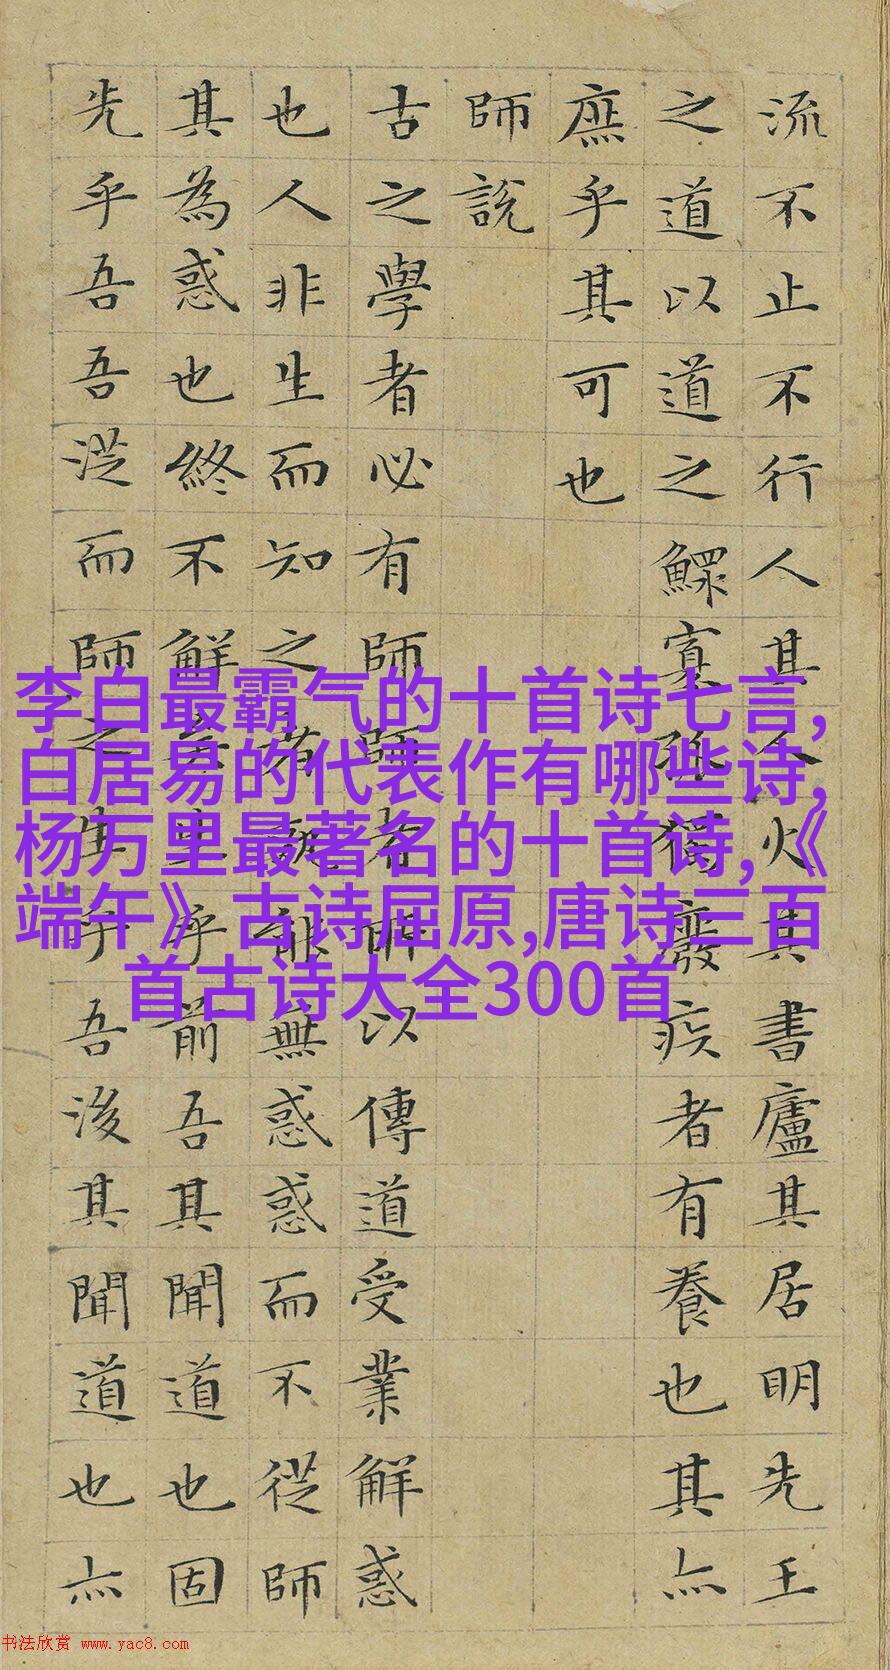 流不止不行人其人火其書廬其居明先王
之道以道之鰥寡孤獨廢疾者有養也其亦
庶乎其可也
師說
古之學者必有師師者所以傳道受業解惑
也人非生而知之者孰能無惑惑而不從師
其為惑也終不解矣生乎前吾其聞道也固
先乎吾吾從而師之生乎吾後其聞道也亦
李白最霸气的十首诗七言,
白居易的代表作有哪些诗,
杨万里最著名的十首诗,《
端午》古诗屈原,唐诗三百
首古诗大全300首
书法欣赏 www.yac8.com